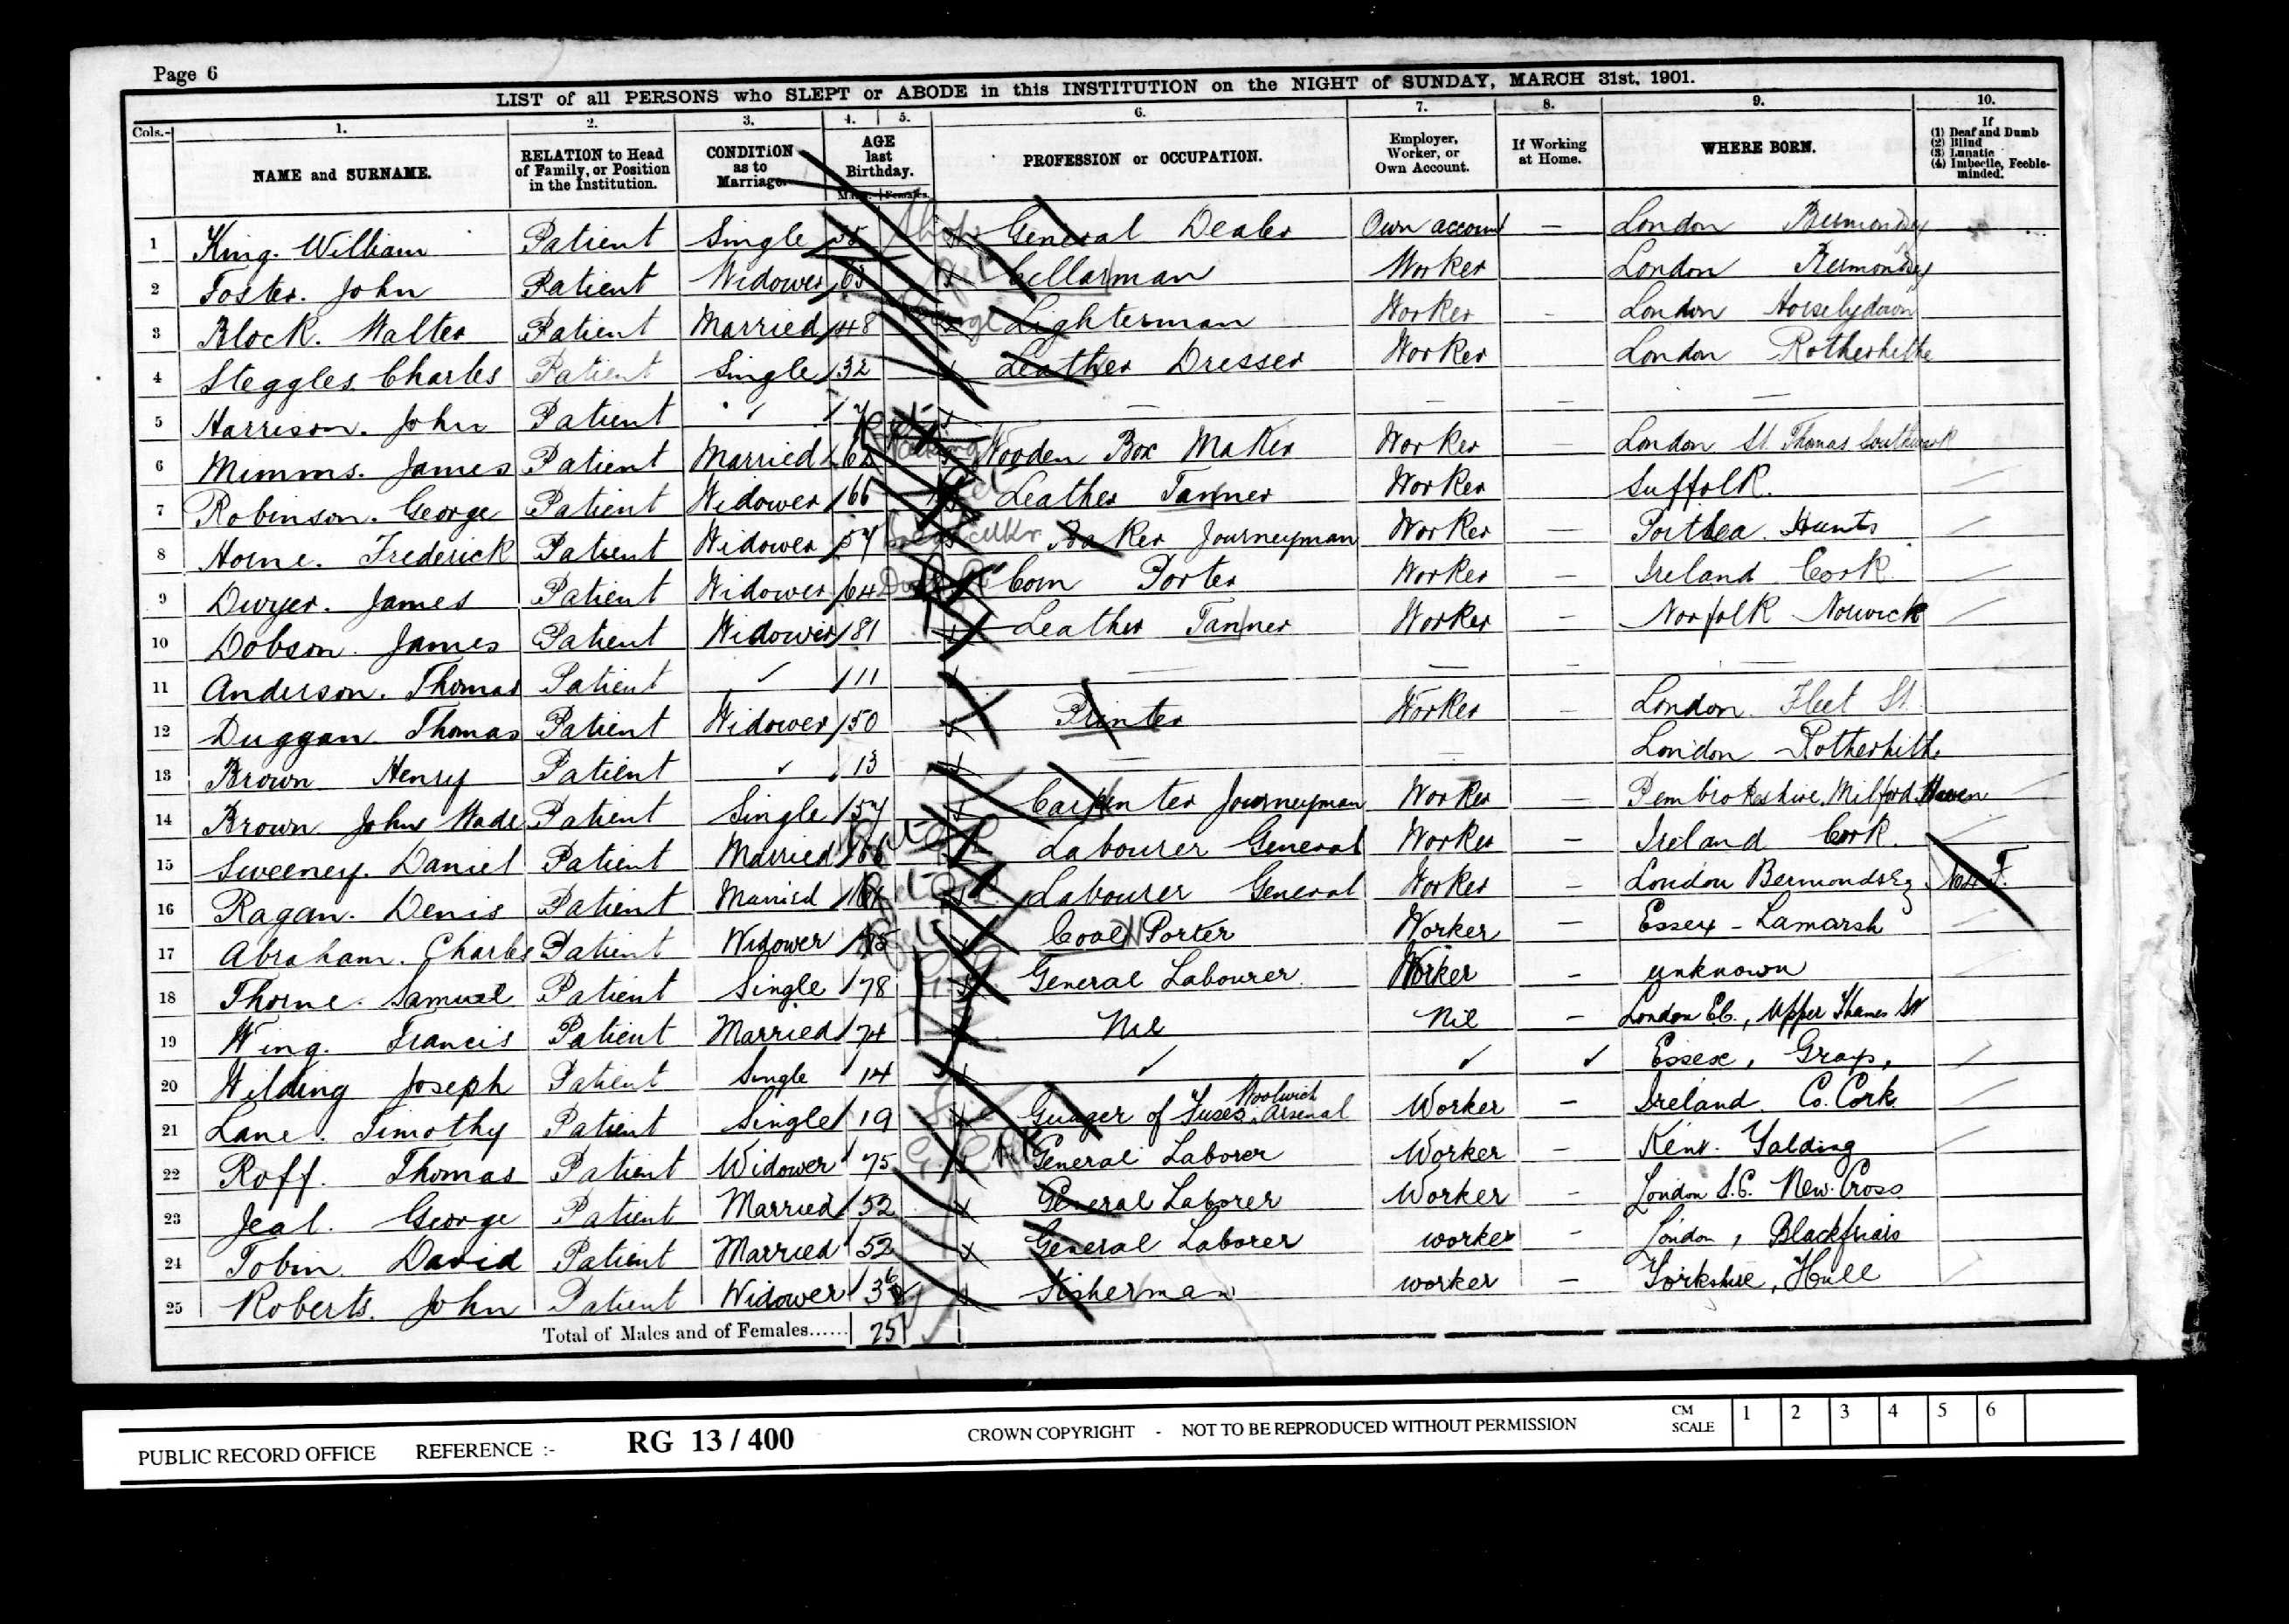 Page 6
LIST of all PERSONS who SLEPT or ABODE in this INSTITUTION on the NIGHT of SUNDAY, MARCH 31st, 1901.
Cols.- 1. 2. 3. 4. 5. 6. 7. 8. 9. 10.
NAME and SURNAME. RELATION to Head of Family, or Position in the Institution. CONDITION as to Marriage. AGE last Birthday. Males. Females. PROFESSION or OCCUPATION. Employer, Worker, or Own Account. If Working at Home. WHERE BORN. If (1) Deaf and Dumb (2) Blind (3) Lunatic (4) Imbecile, Feeble-minded.
1 King. William Patient Single General Dealer Own account — London Bermondsey
2 Foster. John Patient Widower 63 Cellarman Worker London Bermondsey
3 Block. Walter Patient Married 48 Lighterman Worker - London Horselydown
4 Steggles. Charles Patient Single 32 Leather Dresser Worker London Rotherhithe
5 Harrison. John Patient ✓ — — — —
6 Mimms. James Patient Married Wooden Box Maker Worker — London St. Thomas Southwark
7 Robinson. George Patient Widower 66 Leather Tanner Worker Suffolk.
8 Horne. Frederick Patient Widower 57 Baker Journeyman Worker — Portsea. Hunts
9 Dwyer. James Patient Widower 64 Corn Porter Worker — Ireland Cork
10 Dobson. James Patient Widower 81 Leather Tanner Worker — Norfolk Norwich
11 Anderson. Thomas Patient ✓ 11 — — — —
12 Duggan. Thomas Patient Widower 50 Printer Worker — London. Fleet St.
13 Brown Henry Patient ✓ 13 — — London Rotherhithe
14 Brown John Wade Patient Single 57 Carpenter Journeyman Worker — Pembrokeshire, Milford Haven
15 Sweeney. Daniel Patient Married 66 Labourer General Worker — Ireland Cork.
16 Ragan. Denis Patient Married Labourer General Worker — London Bermondsey
17 Abraham. Charles Patient Widower 75 Coal Porter Worker — Essex - Lamarsh
18 Thorne. Samuel Patient Single 78 General Labourer. Worker - unknown
19 Wing. Francis Patient Married 74 Nil Nil - London E.C., Upper Thames St
20 Wilding Joseph Patient Single 14 ✓ ✓ ✓ Essex, Grays,
21 Lane. Timothy Patient Single 19 Guager of Fuses. Woolwich Arsenal Worker - Ireland. Co. Cork.
22 Roff. Thomas Patient Widower 75 General Laborer Worker - Kent. Yalding
23 Jeal. George Patient Married 52 General Laborer Worker - London S.E. New Cross
24 Tobin. David Patient Married 52 General Laborer worker - London, Blackfriars
25 Roberts. John Patient Widower 36 Fisherman worker — Yorkshire, Hull
Total of Males and of Females...... 25
PUBLIC RECORD OFFICE REFERENCE :- RG 13 / 400 CROWN COPYRIGHT - NOT TO BE REPRODUCED WITHOUT PERMISSION CM SCALE 1 2 3 4 5 6